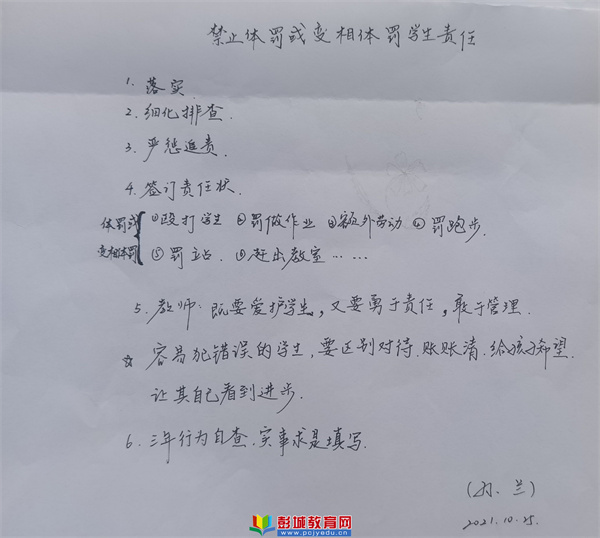 禁止体罚或变相体罚学生责任
1. 落实.
2. 细化排查.
3. 严惩追责.
4. 签订责任状.
体罚或变相体罚{ ①殴打学生 ②罚做作业 ③额外劳动 ④罚跑步.
⑤罚站. ⑥赶出教室……
5. 教师: 既要爱护学生, 又要勇于责任, 敢于管理.
☆ 容易犯错误的学生, 要区别对待. 账账清. 给孩子希望.
让其自己看到进步.
6. 三年行为自查. 实事求是填写.
兰)
2021.10.25.
彭城教育网
www.pcjyedu.cn